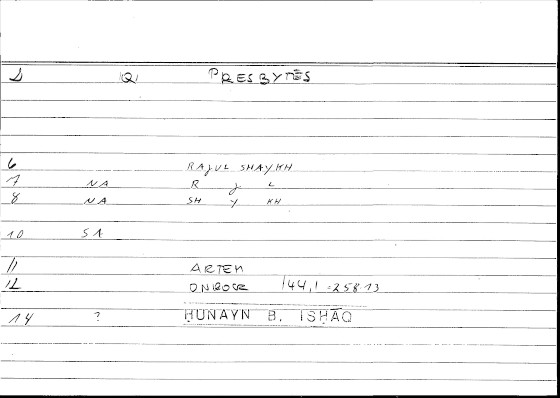 Q PRESBYTĒS
6 RAJUL SHAYKH
7 NA R J L
8 NA SH Y KH
10 SA
11 ARTEM
12 ONIROCR 144,1 = 258 13
14 ? ḤUNAYN B. ISḤĀQ